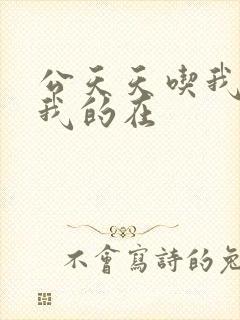 公天天喫我
我的在
不會寫詩的兔